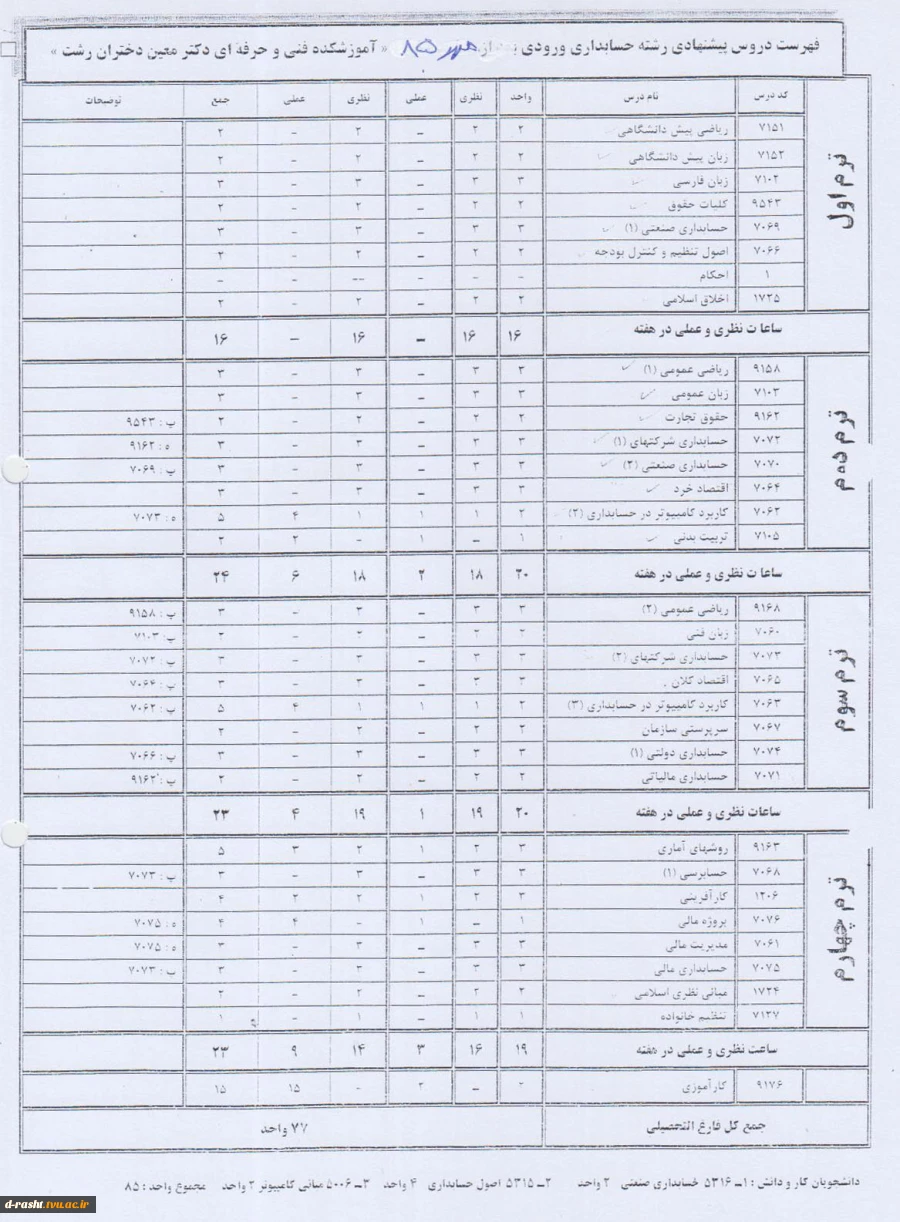 فهرست دروس پیشنهادی رشته حسابداری ورودی مهر ۸۵ « آموزشکده فنی و حرفه ای دکتر معین دختران رشت »
کد درس نام درس واحد نظری عملی نظری عملی جمع توضیحات
ترم اول
۷۱۵۱ ریاضی پیش دانشگاهی ۲ ۲ – ۲ – ۲
۷۱۵۲ زبان پیش دانشگاهی ۲ ۲ – ۲ – ۲
۷۱۰۲ زبان فارسی ۳ ۳ – ۳ – ۳
۹۵۴۳ کلیات حقوق ۲ ۲ – ۲ – ۲
۷۰۶۹ حسابداری صنعتی (۱) ۳ ۳ – ۳ – ۳
۷۰۶۶ اصول تنظیم و کنترل بودجه ۲ ۲ – ۲ – ۲
۱ احکام – – – -- – –
۱۷۳۵ اخلاق اسلامی ۲ ۲ – ۲ – ۲
ساعات نظری و عملی در هفته ۱۶ ۱۶ – ۱۶ – ۱۶
ترم دوم
۹۱۵۸ ریاضی عمومی (۱) ۳ ۳ – ۳ – ۳
۷۱۰۳ زبان عمومی ۳ ۳ – ۳ – ۳
۹۱۶۲ حقوق تجارت ۲ ۲ – ۲ – ۲ پ : ۹۵۴۳
۷۰۷۲ حسابداری شرکتهای (۱) ۳ ۳ – ۳ – ۳ ه : ۹۱۶۲
۷۰۷۰ حسابداری صنعتی (۲) ۳ ۳ – ۳ – ۳ پ : ۷۰۶۹
۷۰۶۴ اقتصاد خرد ۳ ۳ – ۳ – ۳
۷۰۶۲ کاربرد کامپیوتر در حسابداری (۲) ۲ ۱ ۱ ۱ ۴ ۵ ه : ۷۰۷۳
۷۱۰۵ تربیت بدنی ۱ – ۱ – ۲ ۲
ساعات نظری و عملی در هفته ۲۰ ۱۸ ۲ ۱۸ ۶ ۲۴
ترم سوم
۹۱۶۸ ریاضی عمومی (۲) ۳ ۳ – ۳ – ۳ پ : ۹۱۵۸
۷۰۶۰ زبان فنی ۲ ۲ – ۲ – ۲ پ : ۷۱۰۳
۷۰۷۳ حسابداری شرکتهای (۲) ۳ ۳ – ۳ – ۳ پ : ۷۰۷۲
۷۰۶۵ اقتصاد کلان ۳ ۳ – ۳ – ۳ پ : ۷۰۶۴
۷۰۶۳ کاربرد کامپیوتر در حسابداری (۳) ۲ ۱ ۱ ۱ ۴ ۵ پ : ۷۰۶۲
۷۰۶۷ سرپرستی سازمان ۲ ۲ – ۲ – ۲
۷۰۷۴ حسابداری دولتی (۱) ۳ ۳ – ۳ – ۳ پ : ۷۰۶۶
۷۰۷۱ حسابداری مالیاتی ۲ ۲ – ۲ – ۲ پ : ۹۱۶۲
ساعات نظری و عملی در هفته ۲۰ ۱۹ ۱ ۱۹ ۴ ۲۳
ترم چهارم
۹۱۶۳ روشهای آماری ۳ ۲ ۱ ۲ ۳ ۵
۷۰۶۸ حسابرسی (۱) ۳ ۳ – ۳ – ۳ پ : ۷۰۷۳
۱۲۰۶ کارآفرینی ۳ ۲ ۱ ۲ ۲ ۴
۷۰۷۶ پروژه مالی ۱ – ۱ – ۴ ۴ ه : ۷۰۷۵
۷۰۶۱ مدیریت مالی ۳ ۳ – ۳ – ۳ ه : ۷۰۷۵
۷۰۷۵ حسابداری مالی ۳ ۳ – ۳ – ۳ پ : ۷۰۷۳
۱۷۳۴ مبانی نظری اسلامی ۲ ۲ – ۲ – ۲
۷۱۲۷ تنظیم خانواده ۱ ۱ – ۱ – ۱
ساعت نظری و عملی در هفته ۱۹ ۱۶ ۳ ۱۴ ۹ ۲۳
۹۱۷۶ کارآموزی ۲ – ۲ – ۱۵ ۱۵
جمع کل فارغ التحصیلی ۷۷ واحد
دانشجویان کار و دانش : ۱ـ ۵۳۱۶ حسابداری صنعتی ۲ واحد ۲ـ ۵۳۱۵ اصول حسابداری ۴ واحد ۳ـ ۵۰۰۶ مبانی کامپیوتر ۲ واحد مجموع واحد : ۸۵
d-rasht.tvu.ac.ir